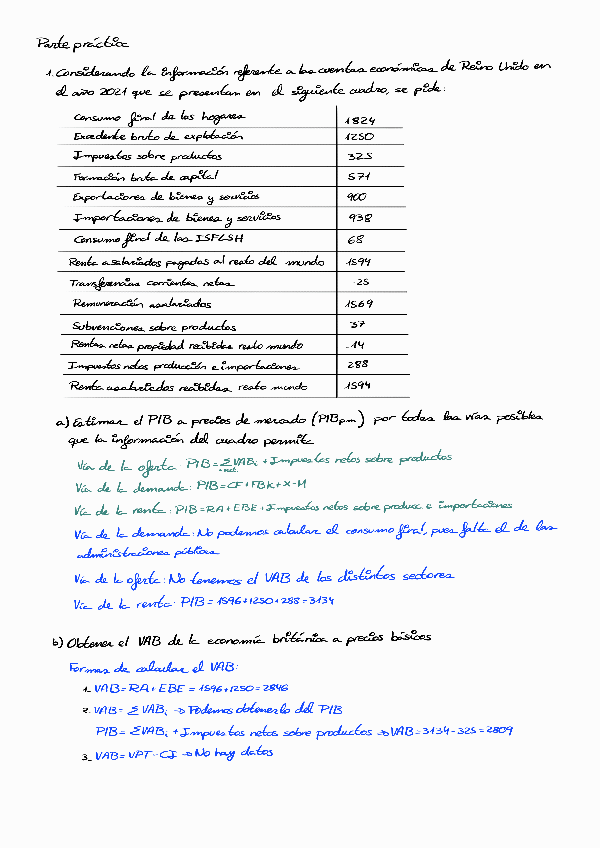 Parte práctica
1. Considerando la información referente a las cuentas económicas de Reino Unido en
el año 2021 que se presentan en el siguiente cuadro, se pide:
Consumo final de los hogares 1824
Excedente bruto de explotación 1250
Impuestos sobre productos 325
Formación bruta de capital 571
Exportaciones de bienes y servicios 900
Importaciones de bienes y servicios 938
Consumo final de las ISFLSH 68
Renta asalariados pagadas al resto del mundo 1594
Transferencias corrientes netas -25
Remuneración asalariados 1569
Subvenciones sobre productos 37
Rentas netas propiedad recibidas resto mundo -14
Impuestos netos producción e importaciones 288
Renta asalariados recibidas resto mundo 1594
a) Estimar el PIB a precios de mercado (PIBpm) por todas las vías posibles
que la información del cuadro permite
Vía de la oferta PIB = ΣVABi + Impuestos netos sobre productos
Vía de la demanda: PIB = CF + FBK + X - M
Vía de la renta: PIB = RA + EBE + Impuestos netos sobre produc. e importaciones
Vía de la demanda: No podemos calcular el consumo final, pues falta el de las
administraciones públicas
Vía de la oferta: No tenemos el VAB de los distintos sectores
Vía de la renta: PIB = 1596 + 1250 + 288 = 3134
b) Obtener el VAB de la economía británica a precios básicos
Formas de calcular el VAB:
1_ VAB = RA + EBE = 1596 + 1250 = 2846
2_ VAB = ΣVABi → Podemos obtenerlo del PIB
PIB = ΣVABi + Impuestos netos sobre productos → VAB = 3134 - 325 = 2809
3_ VAB = VPT - CI → No hay datos